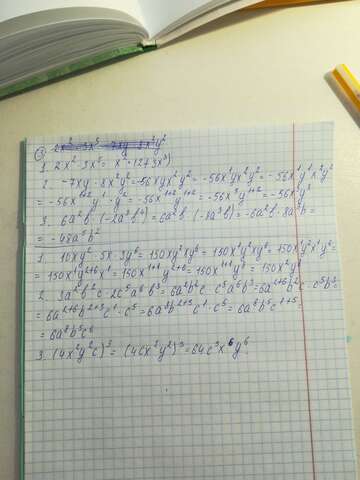 1. 2x² · 3x⁵ = x²·(2+3x³)
2. -7xy · 8x²y² = -56xyx²y² = -56x¹yx²y² = -56x¹y¹x²y²
= -56x¹⁺²y¹·y² = -56x¹⁺²y¹⁺² = -56x³y¹⁺² = -56x³y³
3. 6a²b · (-2a³b⁴) = 6a²b · (-8a³b) = -6a²b · 8a³b =
= -48a⁵b²
1. 10xy² · 5x · 3y⁶ = 150xy²xy⁶ = 150x¹y²xy⁶ = 150x¹y²x¹y⁶ =
= 150x¹y²⁺⁶x¹ = 150x¹⁺¹y²⁺⁶ = 150x¹⁺¹y⁸ = 150x²y⁸
2. 3a²b²c · 2c⁵a⁶b³ = 6a²b²c · c⁵a⁶b³ = 6a²⁺⁶b²c · c⁵b³ =
= 6a²⁺⁶b²⁺³c¹ · c⁵ = 6a⁸b²⁺³c¹ · c⁵ = 6a⁸b⁵c¹⁺⁵ =
= 6a⁸b⁵c⁶
3. (4x²y²c)³ = (4cx²y²)³ = 64c³x⁶y⁶